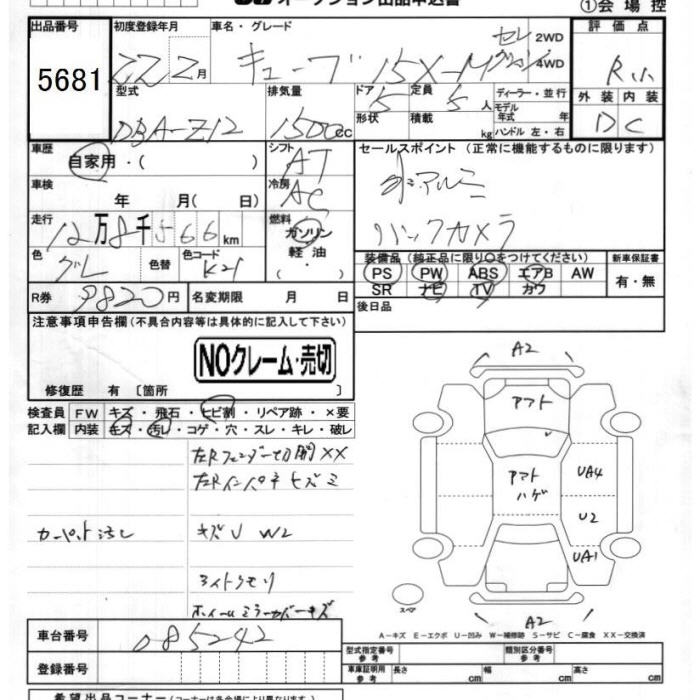 オークション出品申込書
①会場控
出品番号 初度登録年月 車名・グレード 評価点
5681 22 2月 キューブ 15X-M セレクション 2WD 4WD R小
型式 排気量 ドア 定員 ディーラー・並行 外装 内装
DBA-Z12 1500cc 5 5人 モデル年式 年 D C
形状 積載 kg ハンドル 左・右
車歴 シフト セールスポイント (正常に機能するものに限ります)
自家用・( ) AT
車検 冷房 アルミ
年 月( 日) AC
走行 燃料 バックカメラ
12万8千566km ガソリン
色 色替 色コード 軽油 装備品 (純正品に限り○をつけてください) 新車保証書
グレ K21 ・( ) PS PW ABS エアB AW 有・無
R券 9820円 名変期限 月 日 SR ナビ TV カワ
注意事項申告欄 (不具合内容等は具体的に記入して下さい) 後日品
NOクレーム・売切
修復歴 有 〔箇所 〕
検査員 FW キズ・飛石・ヒビ割・リペア跡・×要
記入欄 内装 キズ・汚レ・コゲ・穴・スレ・キレ・破レ
左Rフェンダー切開XX
左Rインパネヒズミ
カーペット汚レ キズU W2
ライトクモリ
ホイールミラーカバーキズ
A2
アマト
アマト
ハゲ
UA4
U2
UA1
スペア
A2
A-キズ E-エクボ U-凹み W-補修跡 S-サビ C-腐食 XX-交換済
車台番号 085242
型式指定番号 参考 類別区分番号 参考
登録番号 車庫証明用 参考 長さ cm 幅 cm 高さ cm
希望出品コーナー (コーナーは各会場により異なります)